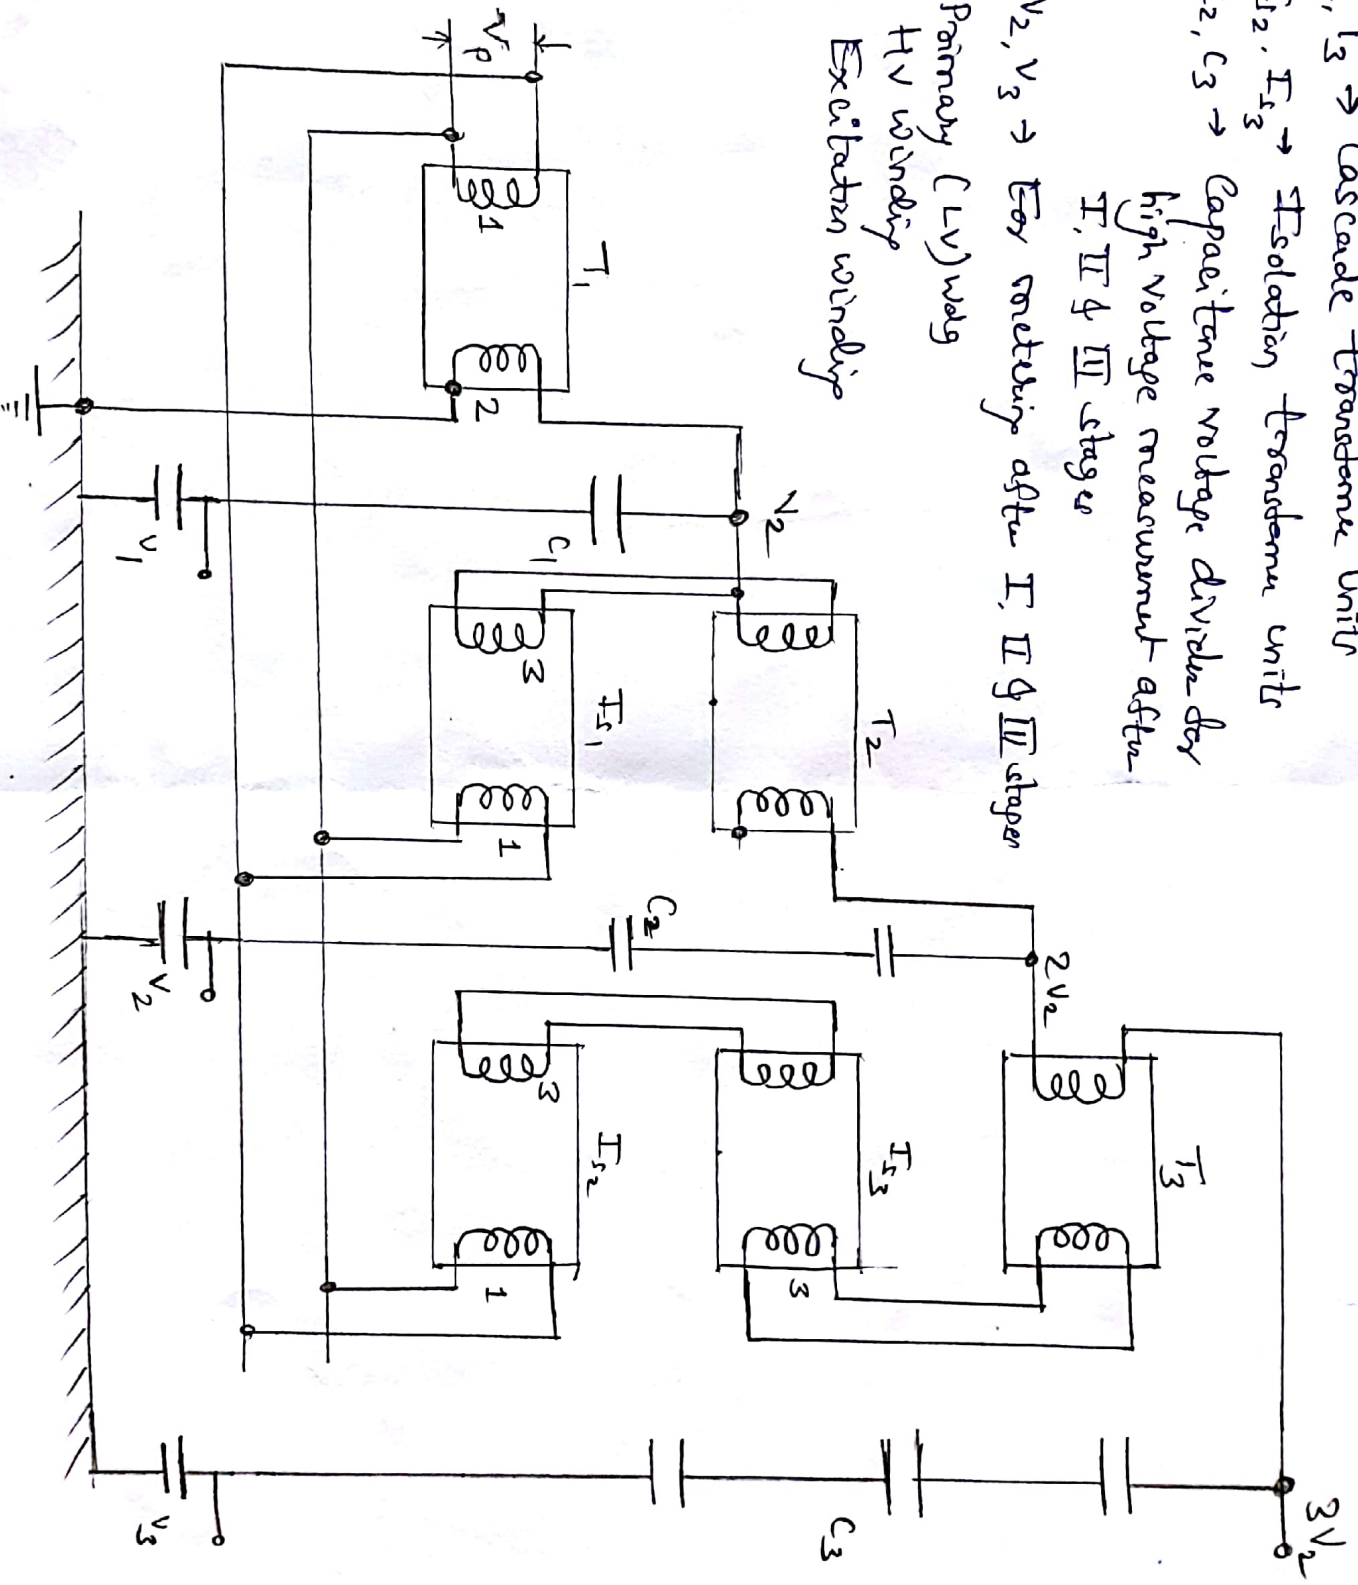 , T3 → Cascade transformer units
s2, Is3 → Isolation transformer units
2, C3 → Capacitance voltage divider for
high voltage measurement after
I, II & III stages
V2, V3 → For metering after I, II & III stages
Primary (LV) wdg
HV winding
Excitation winding
Vp
1
T1
2
V2
C1
V1
T2
3
Is1
1
2V2
C2
V2
T3
Is3
3
3
Is2
1
3V2
C3
V3